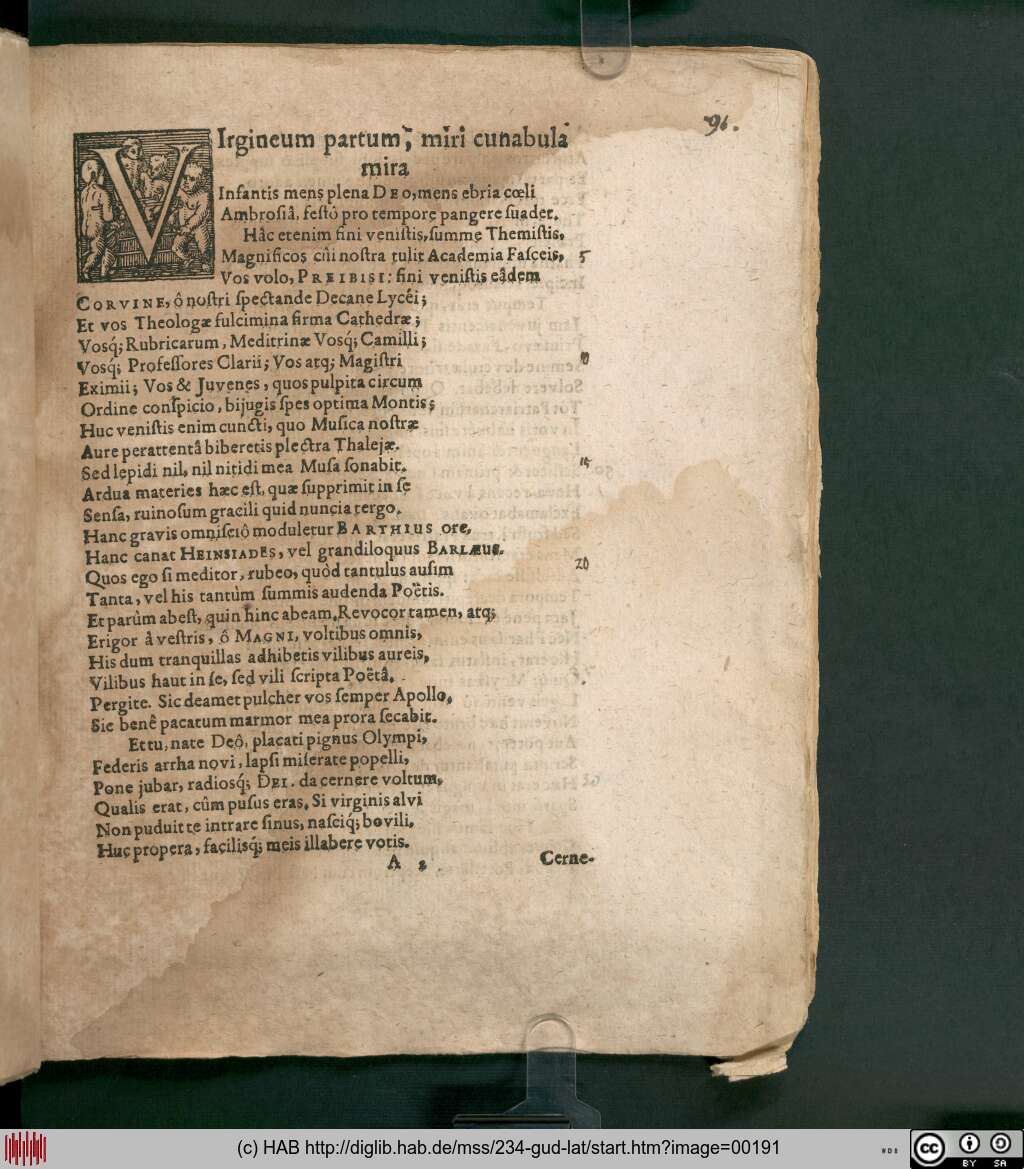 96.
VIrgineum partum, miri cunabula
mira
Infantis mens plena DEO, mens ebria cœli
Ambrosiâ, festo pro tempore pangere suadet.
Hâc etenim fini venistis, summe Themistis,
Magnificos cui nostra tulit Academia Fasceis, 5
Vos volo, PREIBISI: fini venistis eâdem
CORVINE, ô nostri spectande Decane Lycéi;
Et vos Theologæ fulcimina firma Cathedræ;
Vosq́; Rubricarum, Meditrinæ Vosq́; Camilli;
Vosq́; Professores Clarii; Vos atq; Magistri 10
Eximii; Vos & Juvenes, quos pulpita circum
Ordine conspicio, bijugis spes optima Montis;
Huc venistis enim cuncti, quo Musica nostræ
Aure perattentâ biberetis plectra Thalejæ.
Sed lepidi nil, nil nitidi mea Musa sonabit. 15
Ardua materies hæc est, quæ supprimit in se
Sensa, ruinosum gracili quid nuncia tergo.
Hanc gravis omnisciô moduletur BARTHIUS ore,
Hanc canat HEINSIADES, vel grandiloquus BARLÆUS.
Quos ego si meditor, rubeo, quòd tantulus ausim 20
Tanta, vel his tantùm summis audenda Poëtis.
Et parùm abest, quin hinc abeam. Revocor tamen, atq;
Erigor à vestris, ô MAGNI, voltibus omnis,
His dum tranquillas adhibetis vilibus aureis,
Vilibus haut in se, sed vili scripta Poëtâ.
Pergite. Sic deamet pulcher vos semper Apollo,
Sic benê pacatum marmor mea prora secabit.
Et tu, nate Deô, placati pignus Olympi,
Federis arrha novi, lapsi miserate popelli,
Pone jubar, radiosq́; DEI. da cernere voltum,
Qualis erat, cûm pusus eras. Si virginis alvi
Non puduit te intrare sinus, nasciq́; bovili,
Huc propera, facilisq́; meis illabere votis.
A 2 Cerne-
(c) HAB http://diglib.hab.de/mss/234-gud-lat/start.htm?image=00191
WDB
cc BY SA